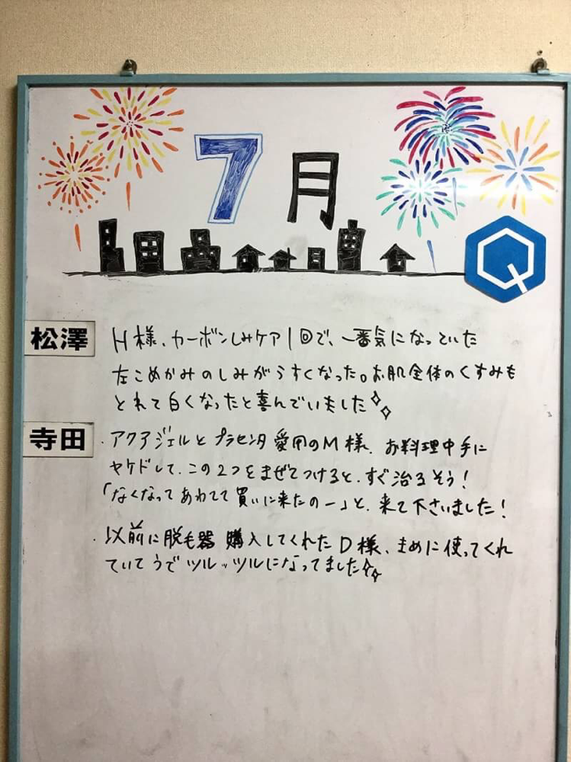 7月
Q
松澤
H様、カーボンしみケア1回で、一番気になっていた
左こめかみのしみがうすくなった。お肌全体のくすみも
とれて白くなったと喜んでいました
寺田
・アクアジェルとプラセンタ愛用のM様、お料理中手に
ヤケドして、この2つをまぜてつけると、すぐ治るそう!
「なくなってあわてて買いに来たのー」と、来て下さいました!
・以前に脱毛器 購入してくれたD様、まめに使ってくれ
ていてうでツルッツルになってました